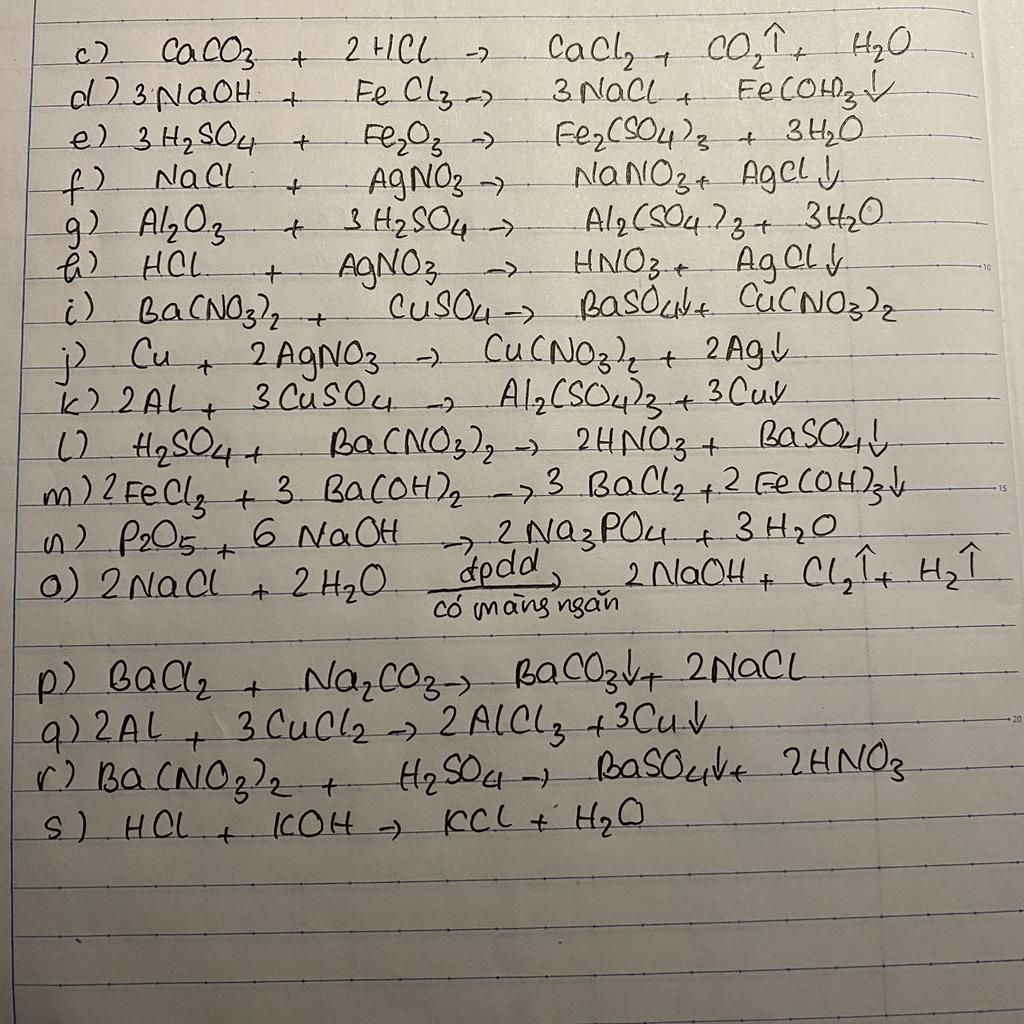 c) CaCO₃ + 2HCl → CaCl₂ + CO₂↑ + H₂O
d) 3NaOH + FeCl₃ → 3NaCl + Fe(OH)₃↓
e) 3H₂SO₄ + Fe₂O₃ → Fe₂(SO₄)₃ + 3H₂O
f) NaCl + AgNO₃ → NaNO₃ + AgCl↓
g) Al₂O₃ + 3H₂SO₄ → Al₂(SO₄)₃ + 3H₂O
h) HCl + AgNO₃ → HNO₃ + AgCl↓
i) Ba(NO₃)₂ + CuSO₄ → BaSO₄↓ + Cu(NO₃)₂
j) Cu + 2AgNO₃ → Cu(NO₃)₂ + 2Ag↓
k) 2Al + 3CuSO₄ → Al₂(SO₄)₃ + 3Cu↓
l) H₂SO₄ + Ba(NO₃)₂ → 2HNO₃ + BaSO₄↓
m) 2FeCl₃ + 3 Ba(OH)₂ → 3 BaCl₂ + 2 Fe(OH)₃↓
n) P₂O₅ + 6 NaOH → 2 Na₃PO₄ + 3H₂O
o) 2NaCl + 2H₂O → 2NaOH + Cl₂↑ + H₂↑
đpdd
có màng ngăn
p) BaCl₂ + Na₂CO₃ → BaCO₃↓ + 2NaCl
q) 2Al + 3CuCl₂ → 2AlCl₃ + 3Cu↓
r) Ba(NO₃)₂ + H₂SO₄ → BaSO₄↓ + 2HNO₃
s) HCl + KOH → KCl + H₂O
5
10
15
20